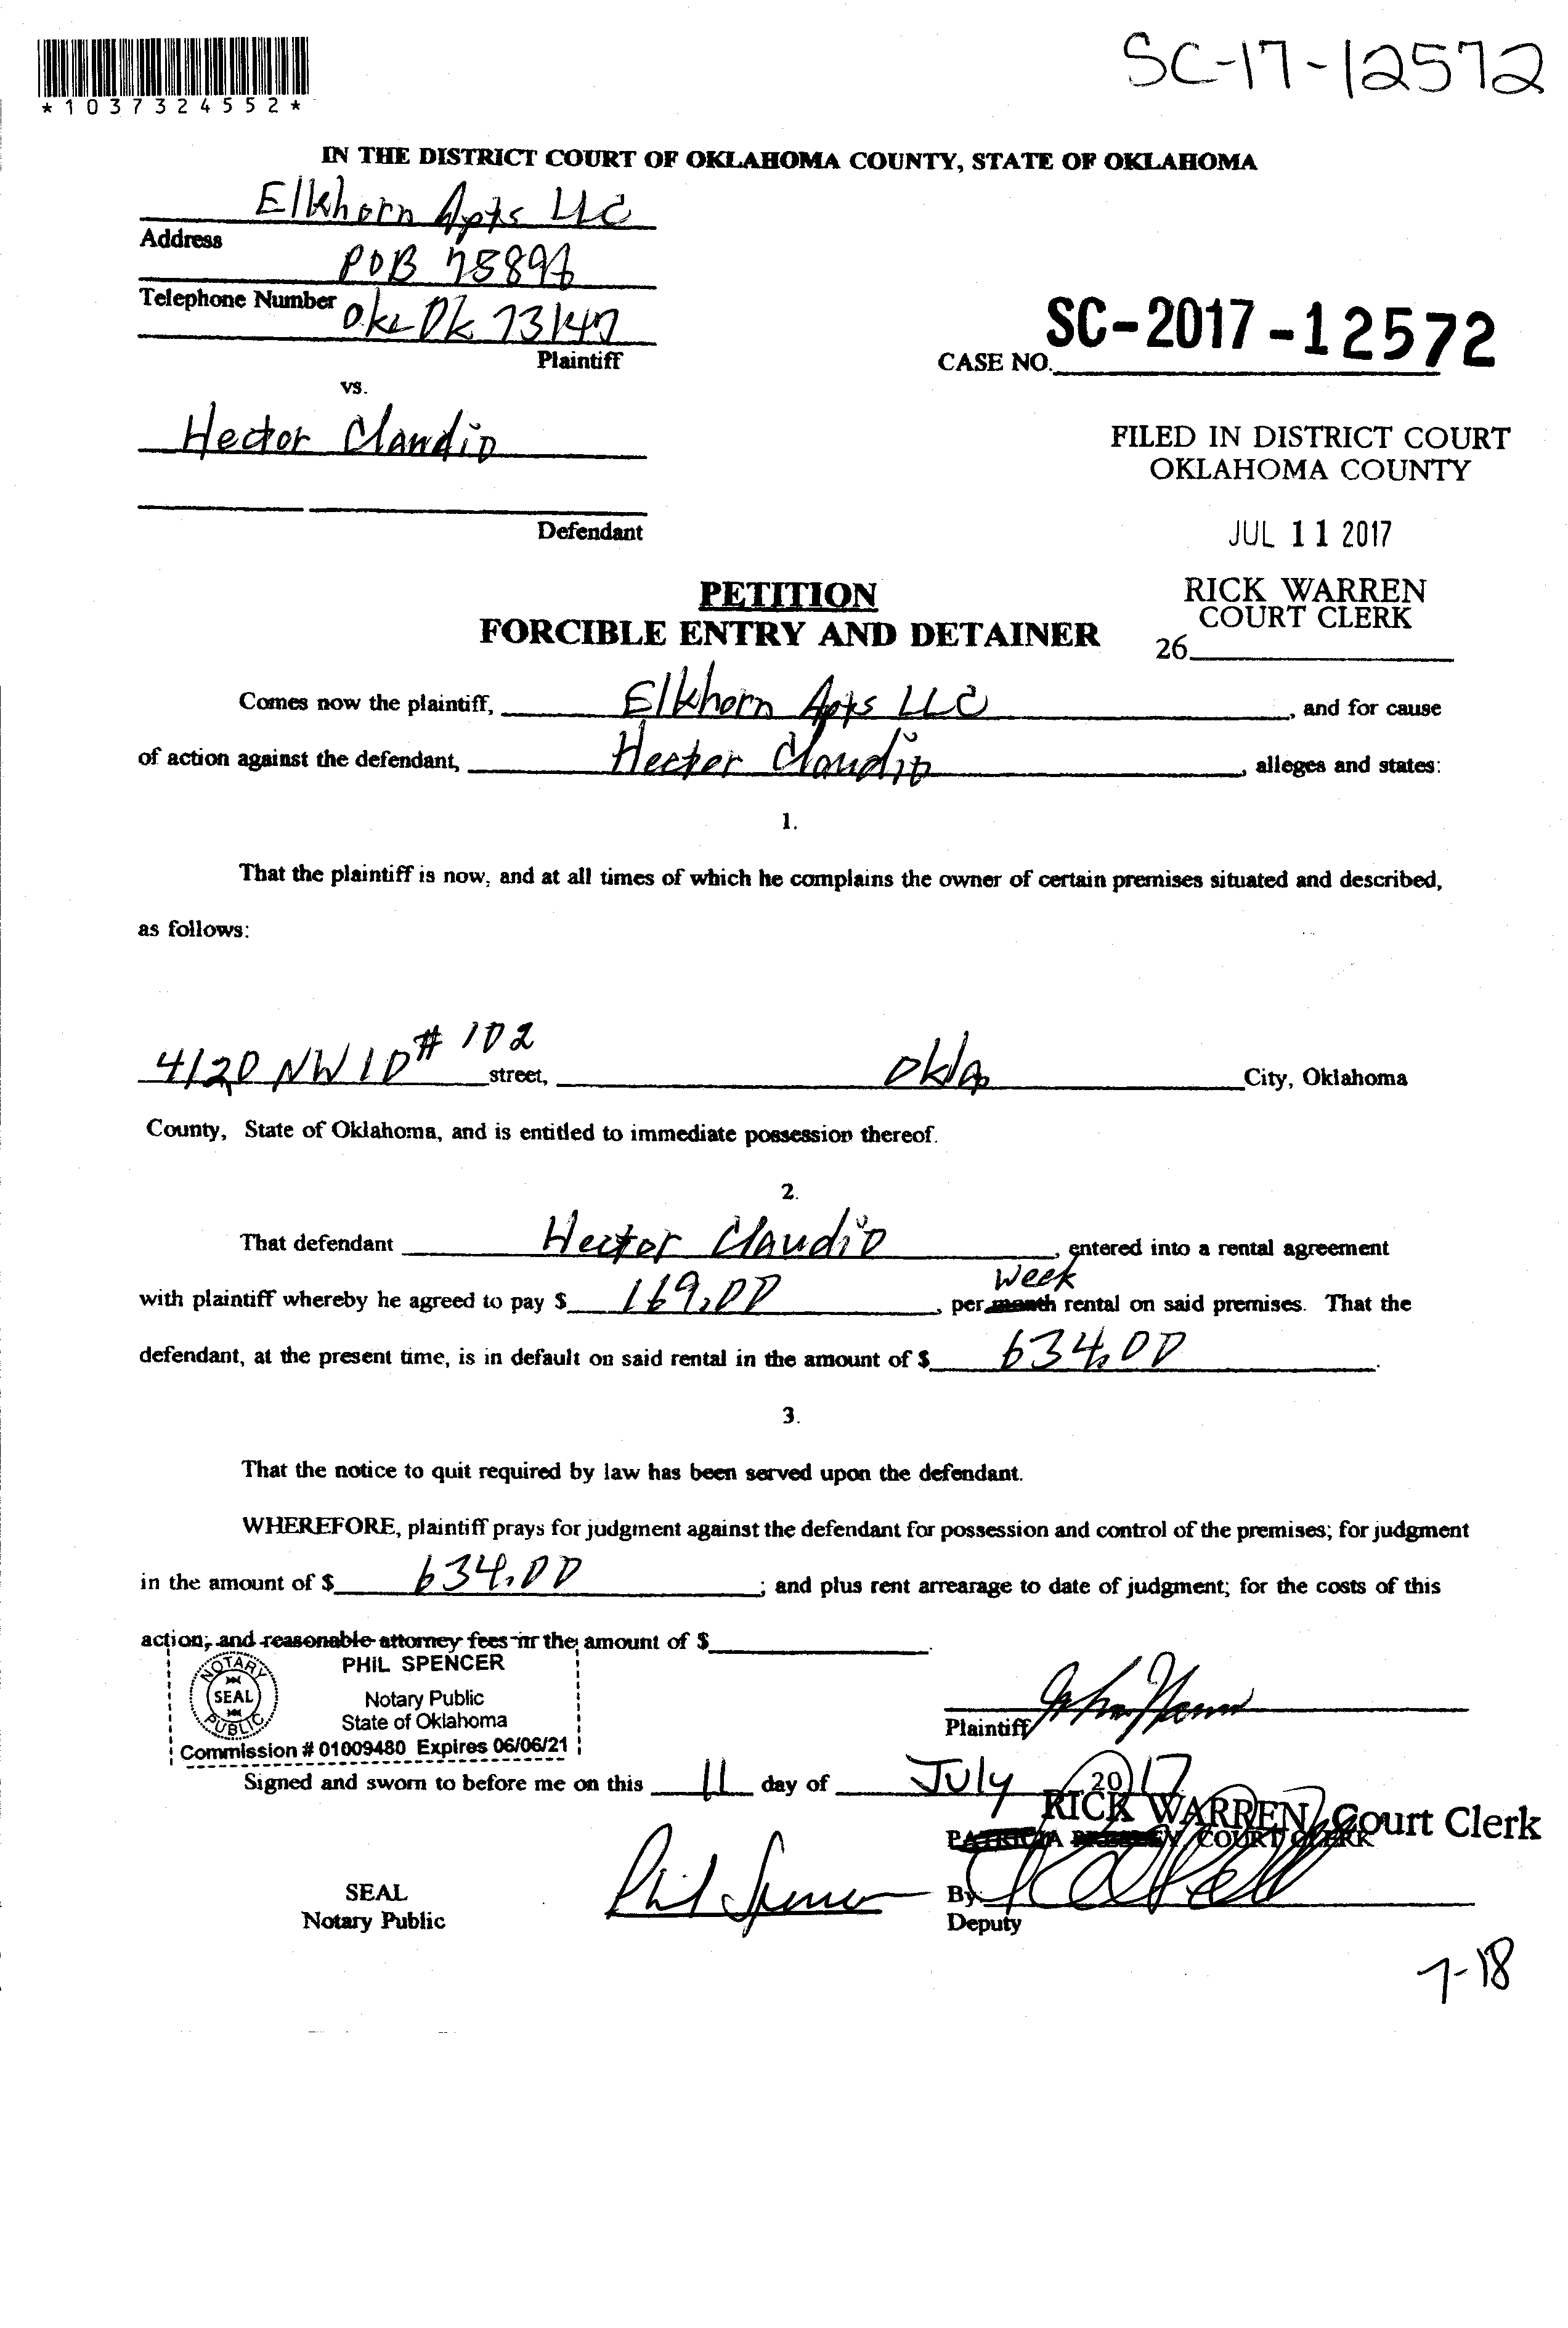 *1037324552*
SC-17-12572
IN THE DISTRICT COURT OF OKLAHOMA COUNTY, STATE OF OKLAHOMA
Elkhorn Apts LLC
Address
POB 75897
Telephone Number
OKC OK 73147
Plaintiff
vs.
CASE NO. SC-2017-12572
Hector Claudio
Defendant
FILED IN DISTRICT COURT
OKLAHOMA COUNTY
JUL 11 2017
RICK WARREN
COURT CLERK
26
PETITION
FORCIBLE ENTRY AND DETAINER
Comes now the plaintiff, Elkhorn Apts LLC, and for cause
of action against the defendant, Hector Claudio, alleges and states:
1.
That the plaintiff is now, and at all times of which he complains the owner of certain premises situated and described,
as follows:
4120 NW 10 # 102 street, Okla City, Oklahoma
County, State of Oklahoma, and is entitled to immediate possession thereof.
2.
That defendant Hector Claudio, entered into a rental agreement
with plaintiff whereby he agreed to pay $ 169.00, per month week rental on said premises. That the
defendant, at the present time, is in default on said rental in the amount of $ 634.00.
3.
That the notice to quit required by law has been served upon the defendant.
WHEREFORE, plaintiff prays for judgment against the defendant for possession and control of the premises; for judgment
in the amount of $ 634.00; and plus rent arrearage to date of judgment; for the costs of this
action; and reasonable attorney fees in the amount of $
NOTARY PUBLIC
SEAL
PHIL SPENCER
Notary Public
State of Oklahoma
Commission # 01009480 Expires 06/06/21
Plaintiff
Signed and sworn to before me on this 11 day of July 2017
RICK WARREN, Court Clerk
PATRICIA COURT CLERK
SEAL
Notary Public
Phil Spencer
By:
Deputy
7-18